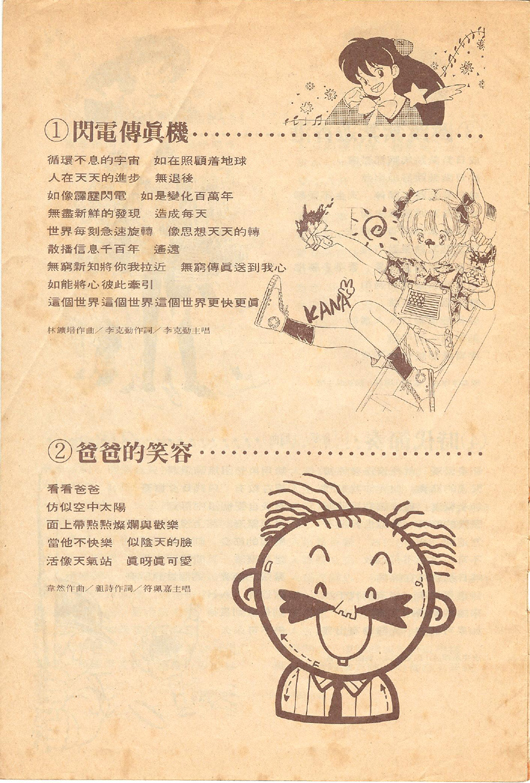 ①閃電傳眞機
循環不息的宇宙　如在照顧着地球
人在天天的進步　無退後
如像霹靂閃電　如是變化百萬年
無盡新鮮的發現　造成每天
世界每刻急速旋轉　像思想天天的轉
散播信息千百年　遙遠
無窮新知將你我拉近　無窮傳眞送到我心
如能將心彼此牽引
這個世界這個世界這個世界更快更眞
林鑛培作曲／李克勤作詞／李克勤主唱
KANA
②爸爸的笑容
看看爸爸
仿似空中太陽
面上帶點點燦爛與歡樂
當他不快樂　似陰天的臉
活像天氣站　眞呀眞可愛
韋然作曲／韻詩作詞／符珮嘉主唱